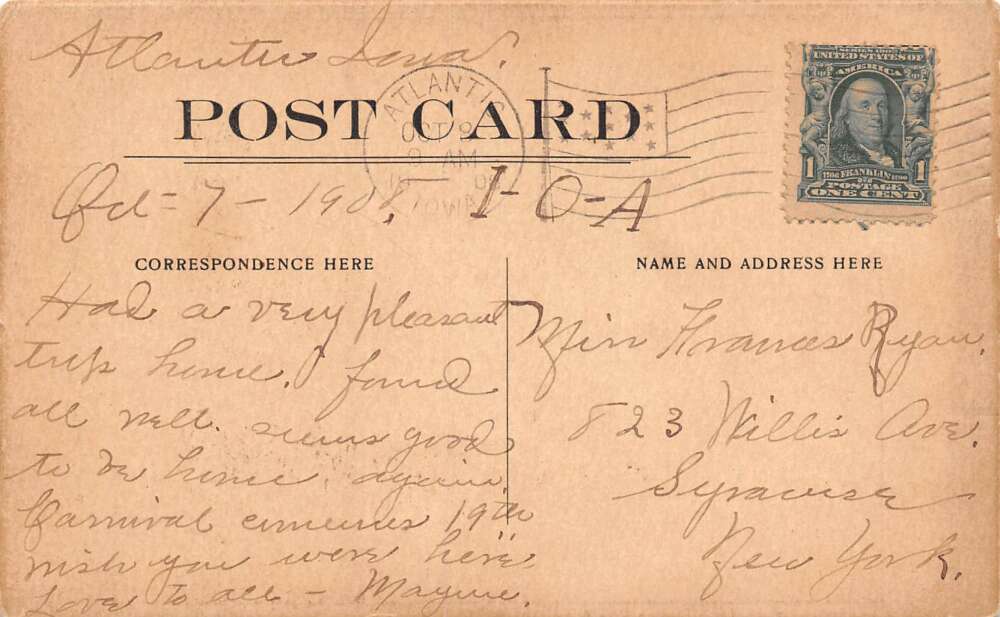 Atlantic Iowa.
POST CARD
ATLANTIC
OCT 9
AM
IOWA
SERIES 1902
UNITED STATES OF
AMERICA
1 1706 FRANKLIN 1790 1
POSTAGE
ONE CENT
Oct - 7 - 1908. I-O-A
CORRESPONDENCE HERE
Had a very pleasant
trip home. found
all well. seems good
to be home, again.
Carnival commences 19th
wish you were here
Love to all - Mayme.
NAME AND ADDRESS HERE
Miss Frances Ryan.
823 Willis Ave.
Syracuse
New York.